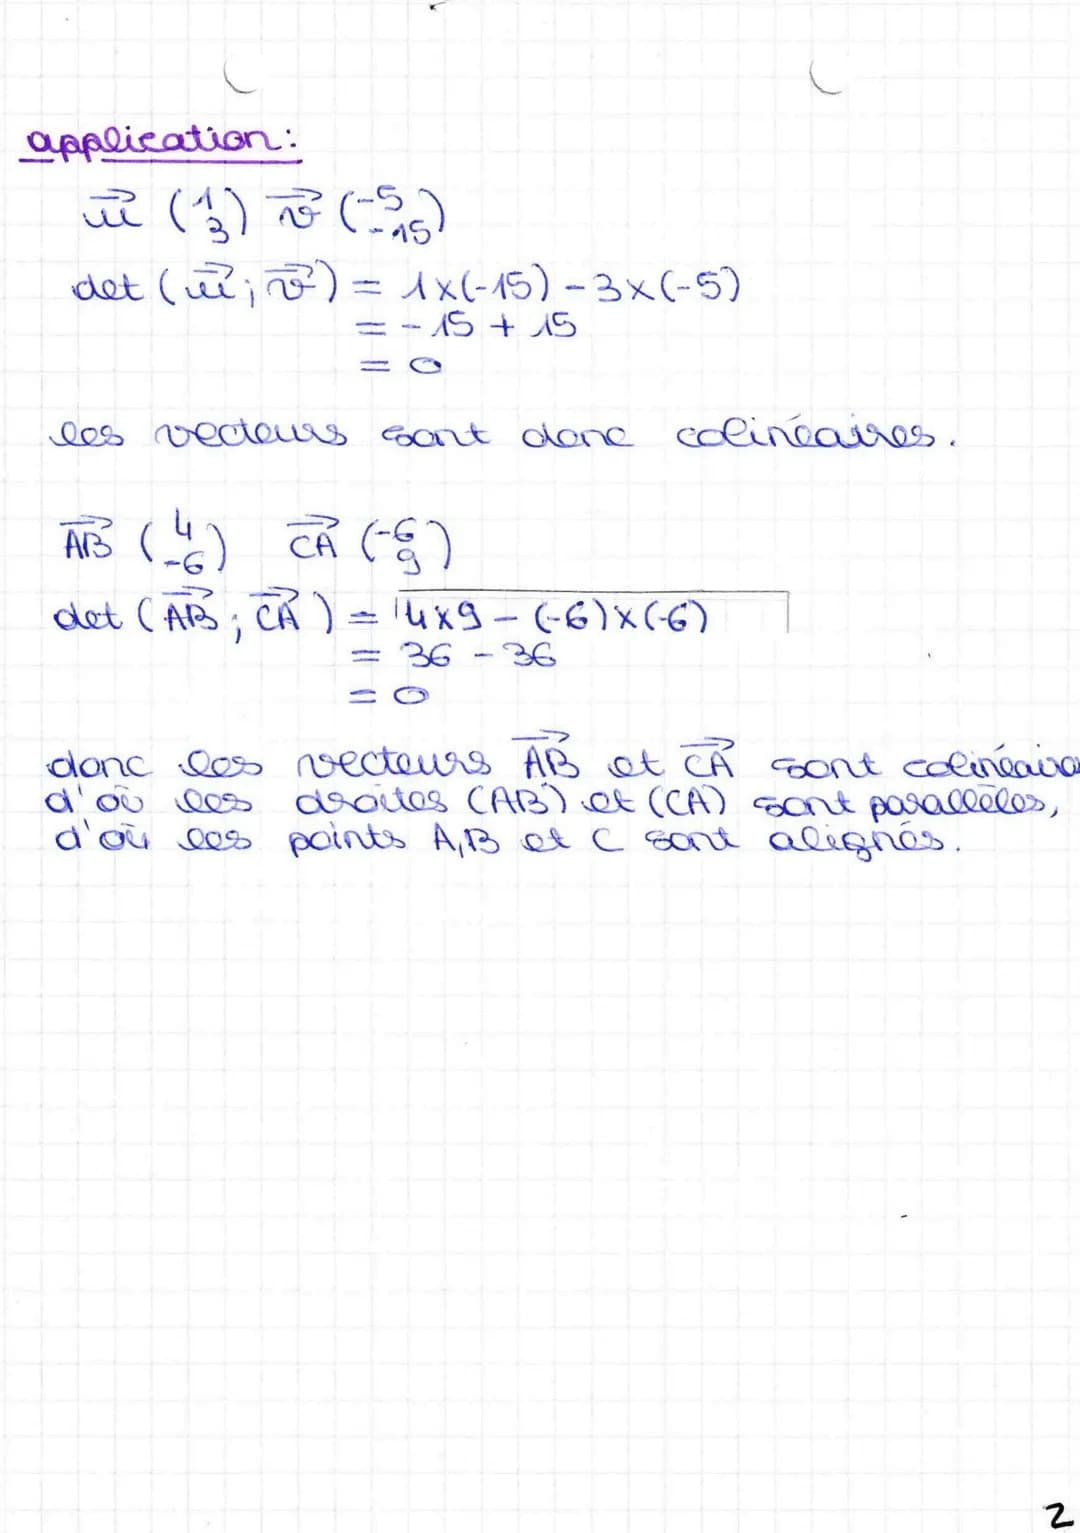 application:
u⃗ (1 3) v⃗ (-5 -15)
det (u⃗ ; v⃗) = 1x(-15) - 3x(-5)
= - 15 + 15
= 0
les vecteurs sont donc colinéaires.
AB⃗ (4 -6) CA⃗ (-6 9)
det (AB⃗ ; CA⃗) = 4x9 - (-6)x(-6)
= 36 - 36
= 0
donc les vecteurs AB⃗ et CA⃗ sont colinéaires
d'où les droites (AB) et (CA) sont parallèles,
d'où les points A,B et C sont alignés.
2